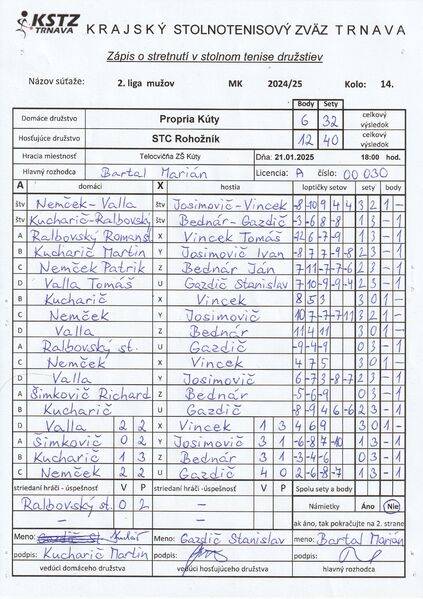 KSTZ TRNAVA KRAJSKÝ STOLNOTENISOVÝ ZVÄZ TRNAVA
Zápis o stretnutí v stolnom tenise družstiev
Názov súťaže: 2. liga mužov MK 2024/25 Kolo: 14.
Body Sety
Domáce družstvo Propria Kúty 6 32 celkový výsledok
Hosťujúce družstvo STC Rohožník 12 40 celkový výsledok
Hracia miestnosť Telocvičňa ZŠ Kúty Dňa: 21.01.2025 18:00 hod.
Hlavný rozhodca Bartal Marián Licencia: A číslo: 00 030
A domáci X hostia loptičky setov sety body
štv Nemček - Valla štv Josimovič - Vincek -8 -10 9 4 4 3 2 1 -
štv Kucharič - Ralbovský štv Bednár - Gazdič -3 -6 8 -8 1 3 - 1
A Ralbovský Roman st. X Vincek Tomáš 1 3 - 1
B Kucharič Martin Y Josimovič Ivan -8 7 7 -9 -8 2 3 - 1
C Nemček Patrik Z Bednár Ján 7 11 -7 -7 -6 2 3 - 1
D Valla Tomáš U Gazdič Stanislav 7 -10 9 -9 -4 2 3 - 1
B Kucharič X Vincek 8 5 3 3 0 1 -
C Nemček Y Josimovič 10 7 -7 -7 11 3 2 1 -
D Valla Z Bednár 11 4 11 3 0 1 -
A Ralbovský st. U Gazdič -9 -4 -9 0 3 - 1
C Nemček X Vincek 4 7 5 3 0 1 -
D Valla Y Josimovič 6 -7 3 -8 -7 2 3 - 1
A Šimkovič Richard Z Bednár -5 -6 -9 0 3 - 1
B Kucharič U Gazdič -8 -9 4 6 -6 2 3 - 1
D Valla 2 2 X Vincek 1 3 4 6 9 3 0 1 -
A Šimkovič 0 2 Y Josimovič 3 1 -6 -8 7 -10 1 3 - 1
B Kucharič 1 3 Z Bednár 3 1 -3 -4 -6 0 3 - 1
C Nemček 2 2 U Gazdič 4 0 2 -6 -8 -7 1 3 - 1
striedaní hráči - úspešnosť V P striedaní hráči - úspešnosť V P Spolu sety a body
Ralbovský st. 0 2 - Námietky Áno Nie
- - ak áno, tak pokračujte na 2. strane
Meno: Meno: Gazdič Stanislav meno: Bartal Marián
podpis: Kucharič Martin podpis: podpis:
vedúci domáceho družstva vedúci hosťujúceho družstva hlavný rozhodca